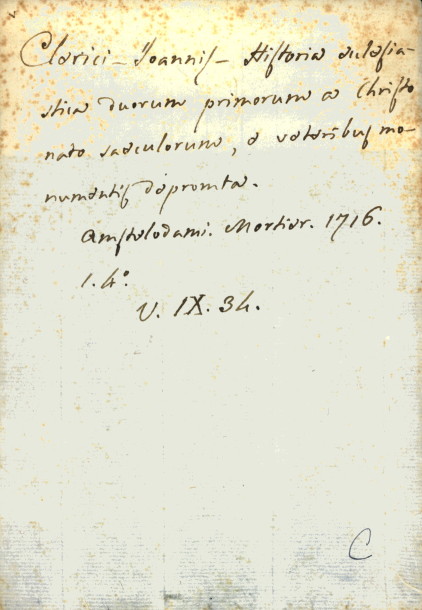 Clerici - Joannis - Historia eclesia-
stica duorum primorum a Christo
nato saeculorum, e veteribus mo-
numentis depromta.
Amstelodami. Mortier. 1716.
1. 4°.
V. IX. 34.
C